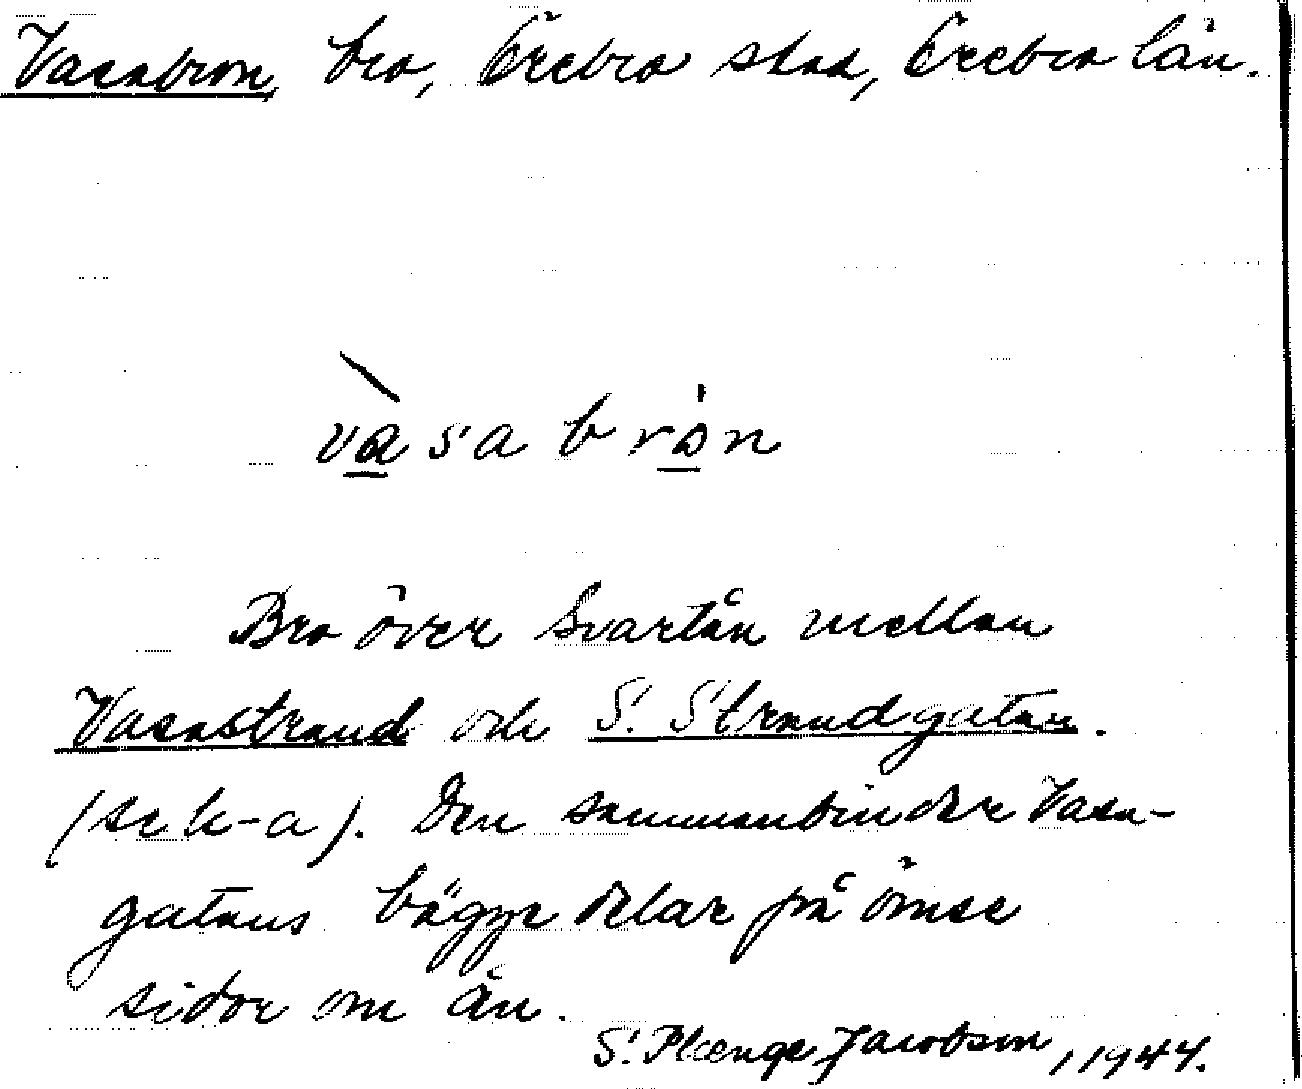 Vasabron, bro, Örebro stad, Örebro län.
vàsa brón
Bro över Svartån mellan
Vasastrand och S. Strandgatan.
(se k-a). Den sammanbinder Vasa-
gatans bägge delar på ömse
sidor om ån.
S. Plænge Jacobson, 1944.